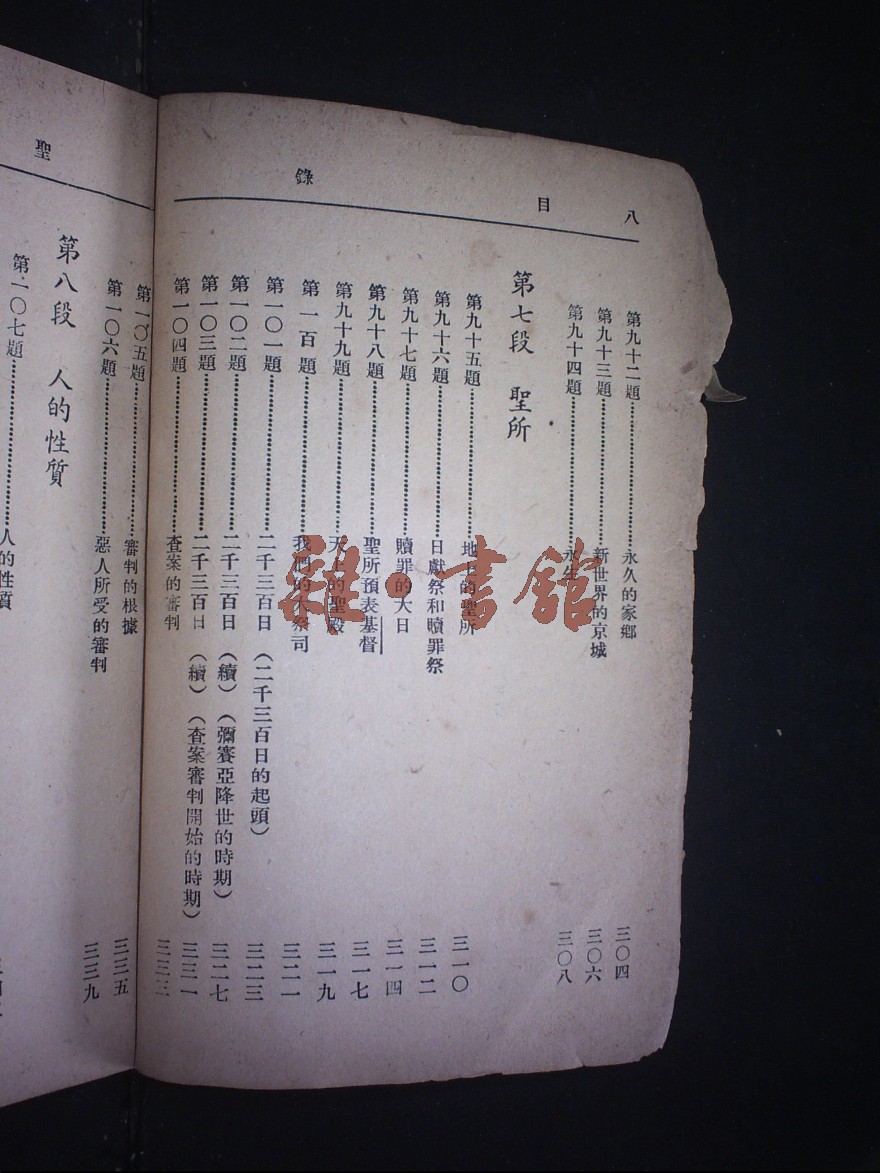 八 目 錄
第九十二題 永久的家鄉 三〇四
第九十三題 新世界的京城 三〇六
第九十四題 永生 三〇八
第七段 聖所
第九十五題 地上的聖所 三一〇
第九十六題 日獻祭和贖罪祭 三一二
第九十七題 贖罪的大日 三一四
第九十八題 聖所預表基督 三一七
第九十九題 天上的聖殿 三一九
第一百題 我們的大祭司 三二一
第一〇一題 二千三百日(二千三百日的起頭) 三二三
第一〇二題 二千三百日(續)(彌賽亞降世的時期) 三二七
第一〇三題 二千三百日(續)(查案審判開始的時期) 三三一
第一〇四題 查案的審判 三三三
第一〇五題 審判的根據 三三五
第一〇六題 惡人所受的審判 三三九
聖
第八段 人的性質
第一〇七題 人的性質
雜·書館